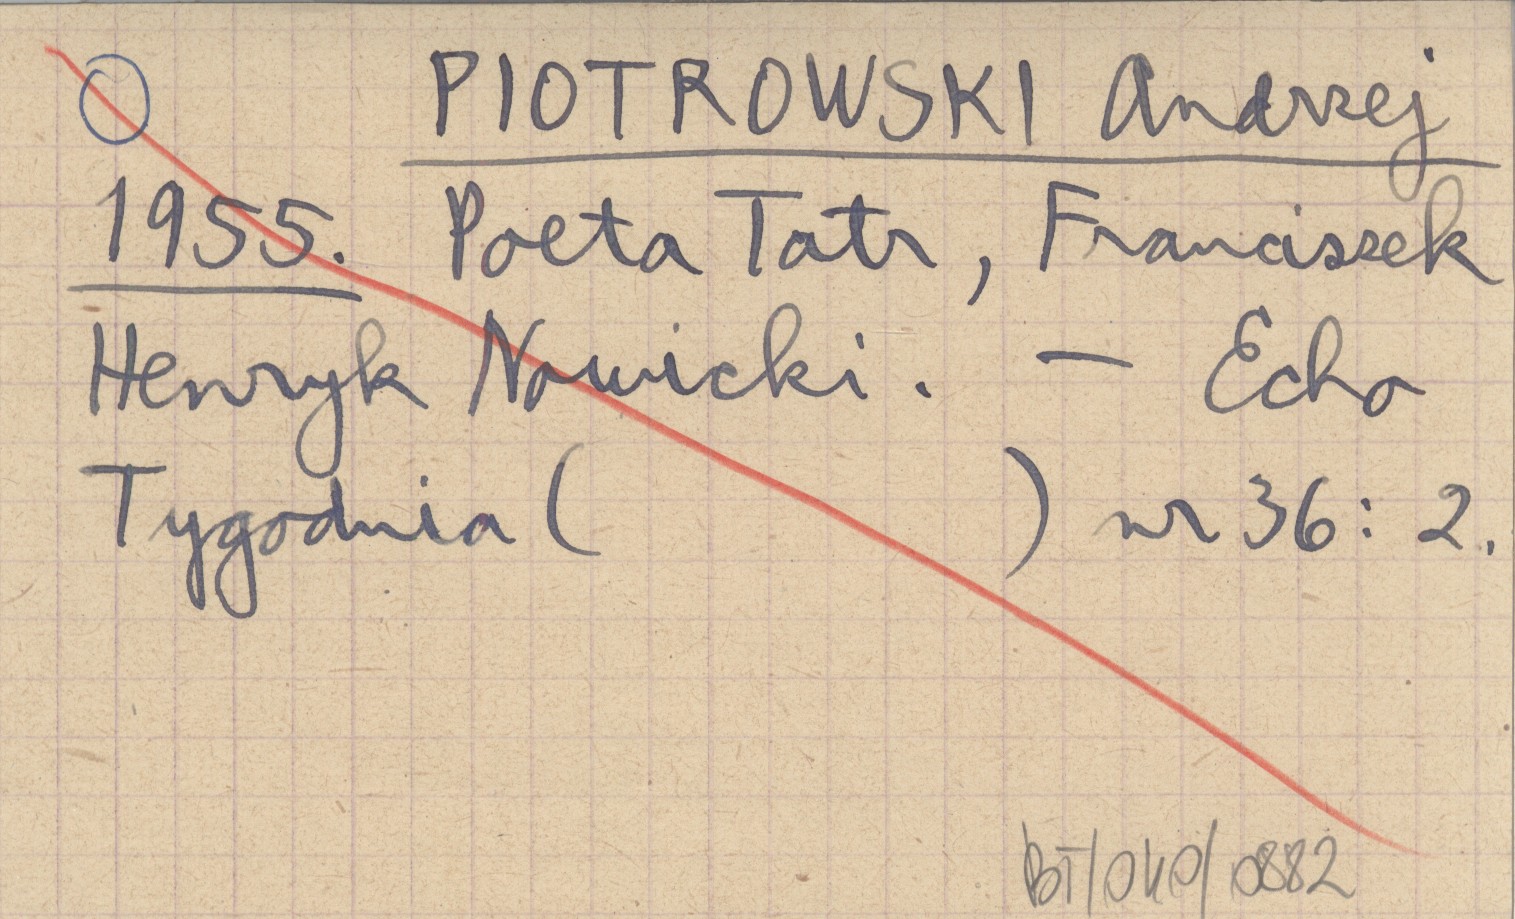 PIOTROWSKI Andrzej
1955. Poeta Tatr, Franciszek
Henryk Nowicki. — Echo
Tygodnia (                    ) nr 36: 2.
BT/OKO/0882